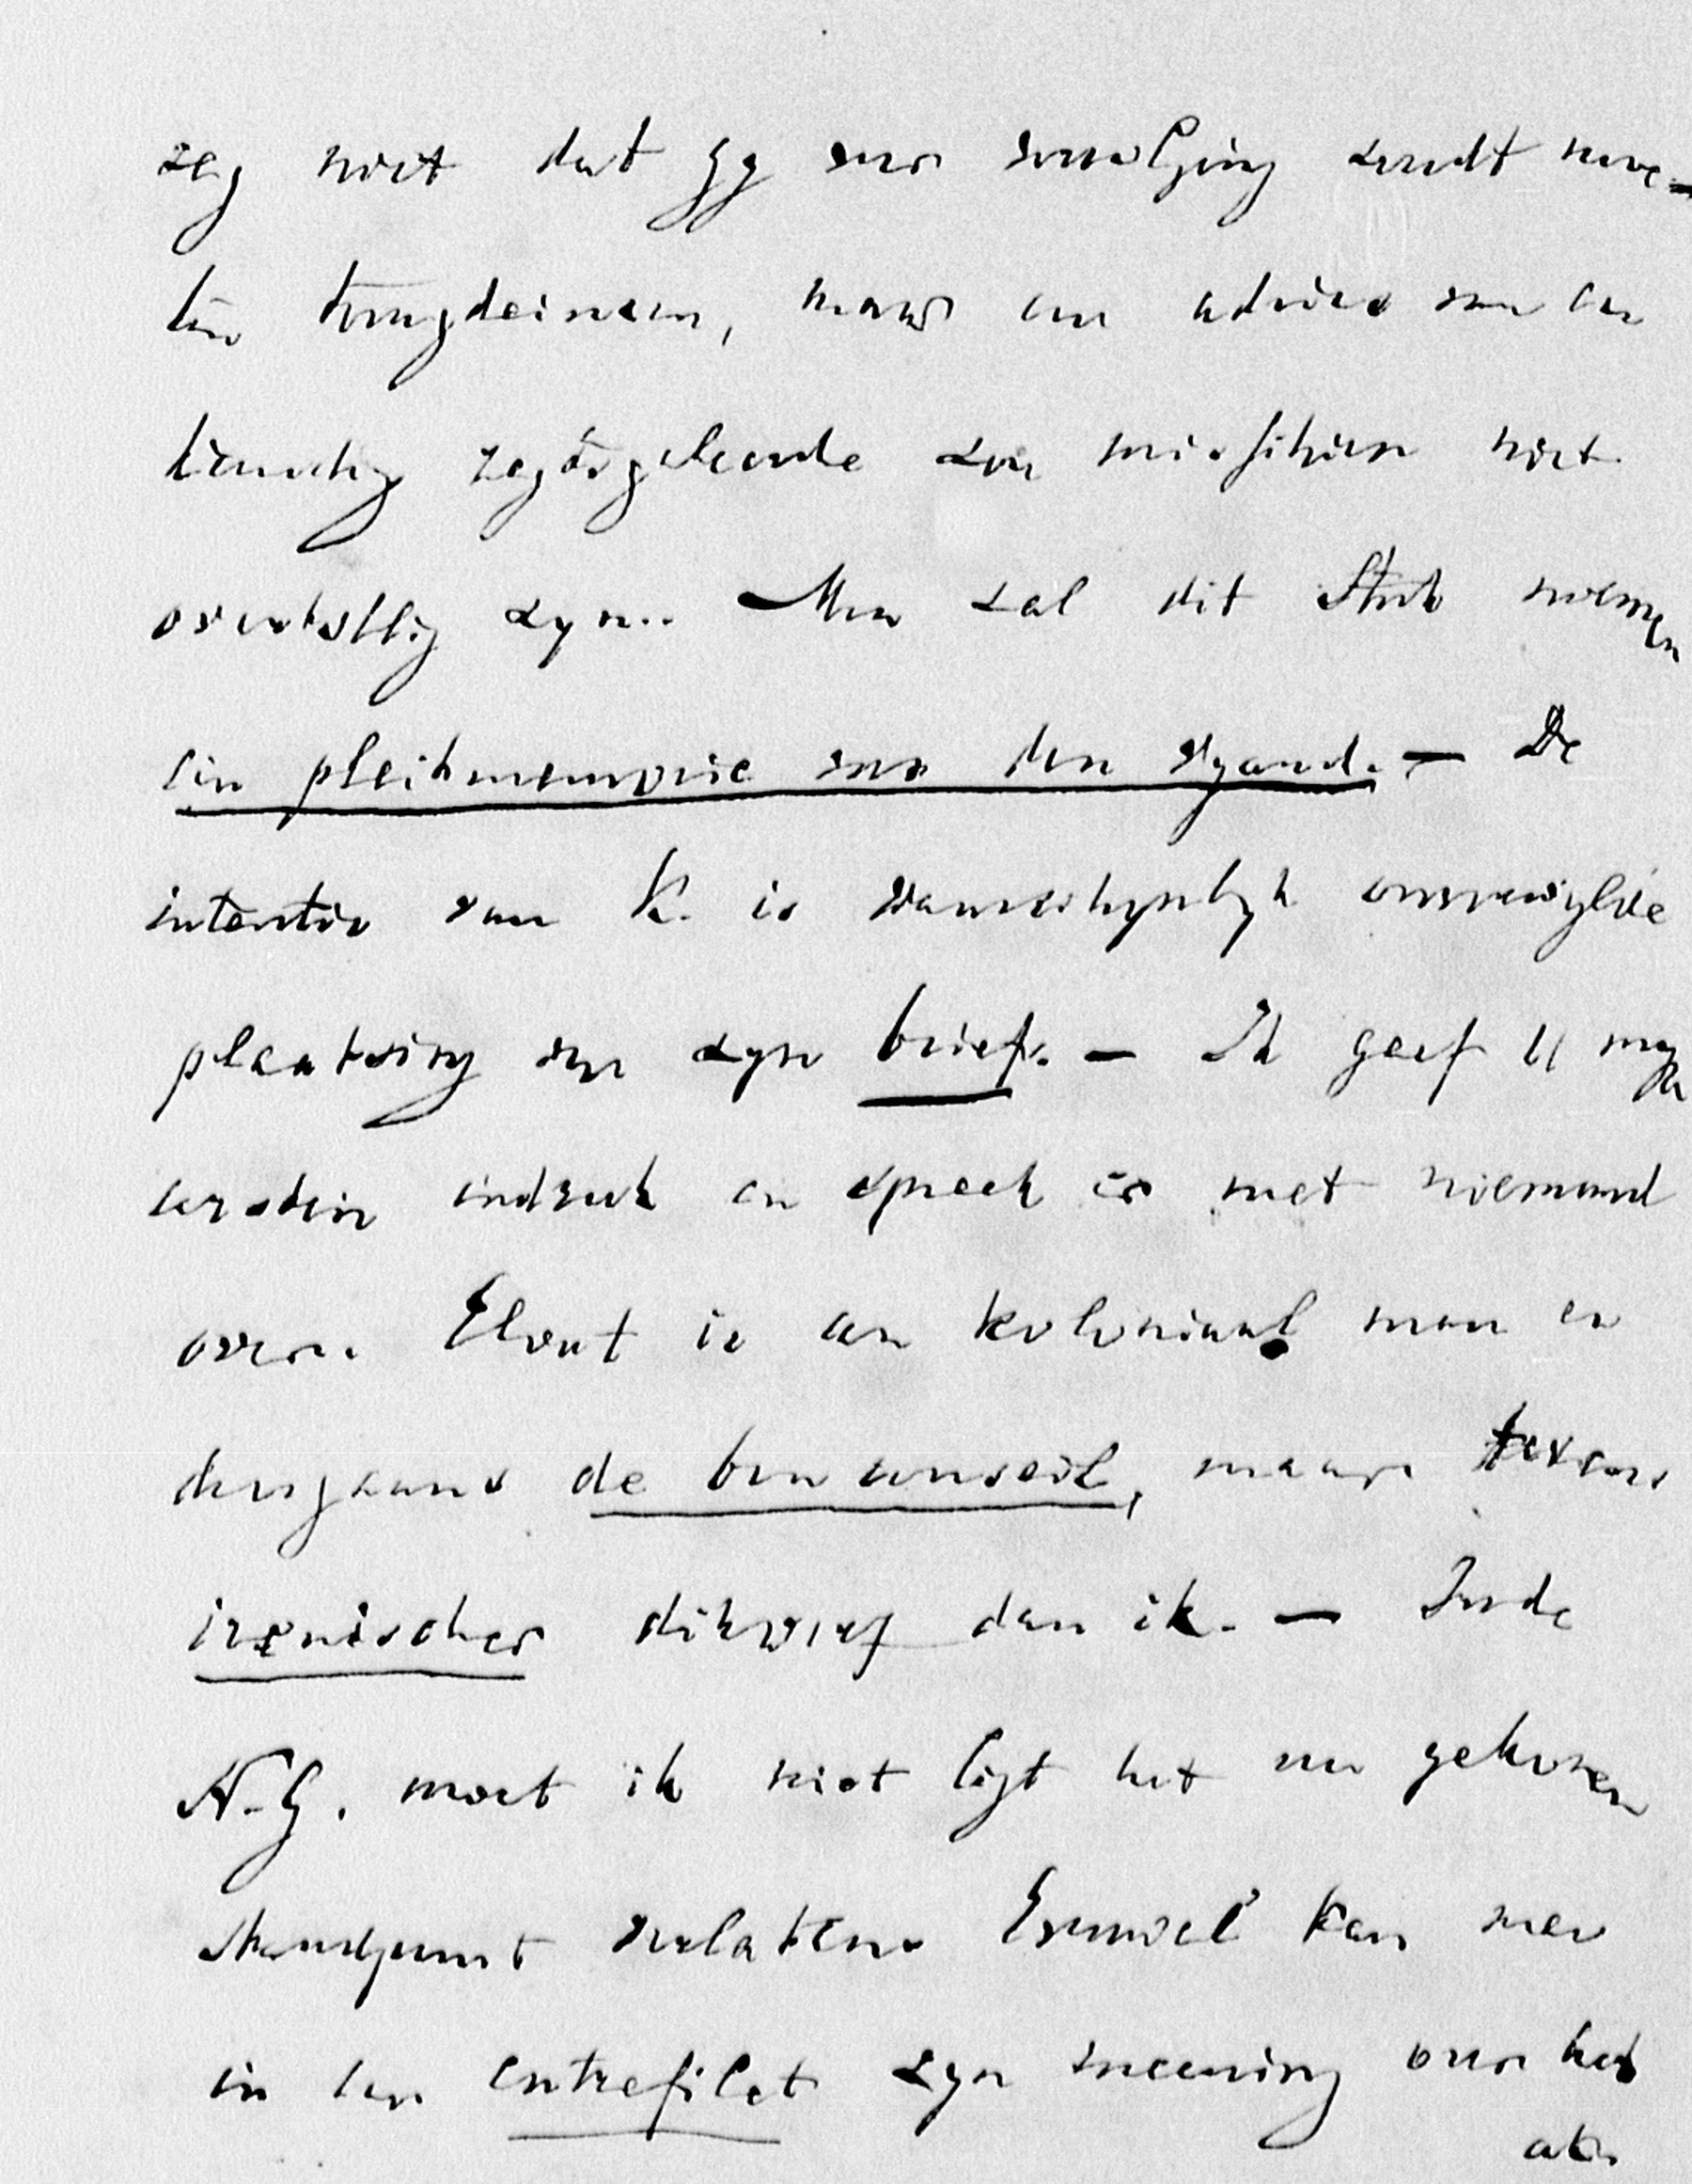 zeg niet dat gy voor vervolging zoudt moe-
ten terugdeinzen, maar een advies van een
kundig regtsgeleerde zou misschien niet
overtollig zyn. Men zal dit stuk noemen
een pleitmemorie van den vyand. — De
intentie van K. is waarschynlyk onmiddelyke
plaatsing van zyn brief. — Ik geef U myn
eersten indruk en spreek er met niemand
over. Elout is een koloniaal man en
desgaand de bon conseil, maar tevens
irenischer dikwerf dan ik. — In de
N.G. moet ik niet ligt het nu gekozen
standpunt verlaten. Evenwel kan men
in een entrefilet zyn meening over het